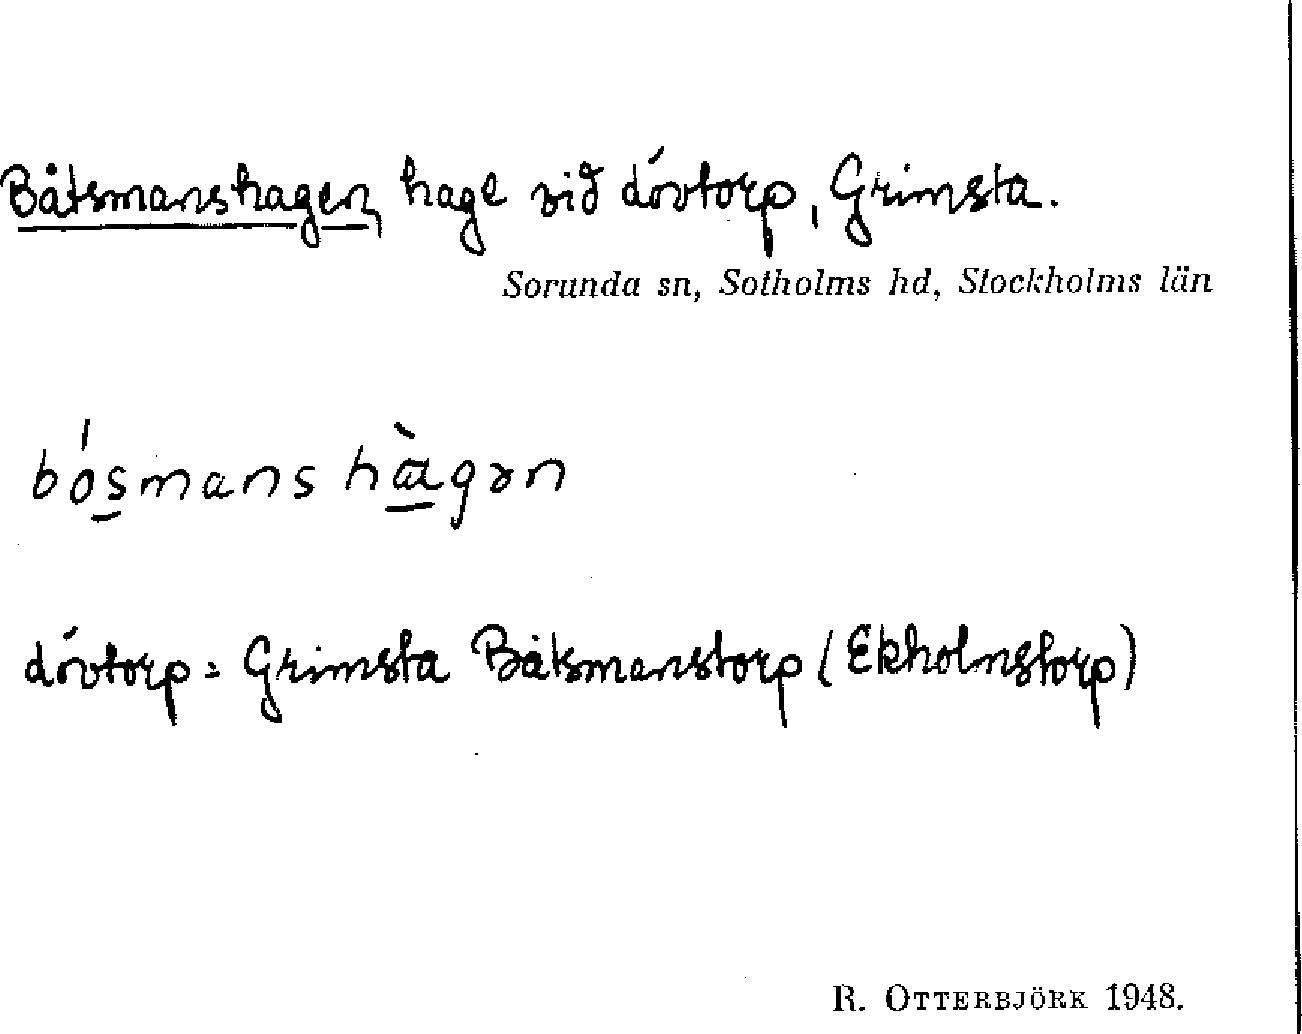 Båtsmanshagen, hage vid dóvtorp, Grimsta.
Sorunda sn, Sotholms hd, Stockholms län
bósmanshàgən
dóvtorp = Grimsta Båtsmanstorp (Ekholmstorp)
R. OTTERBJÖRK 1948.